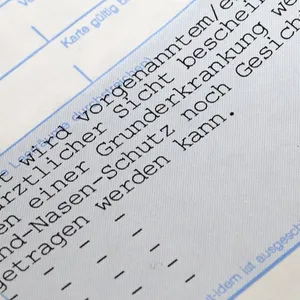 Karte gültig b
t wird vorgenanntem/e
ärztlicher Sicht beschei
en einer Grunderkrankung we
nd-Nasen-Schutz noch Gesich
getragen werden kann.
- - - - -
- - - - -
dem ist ausgesch